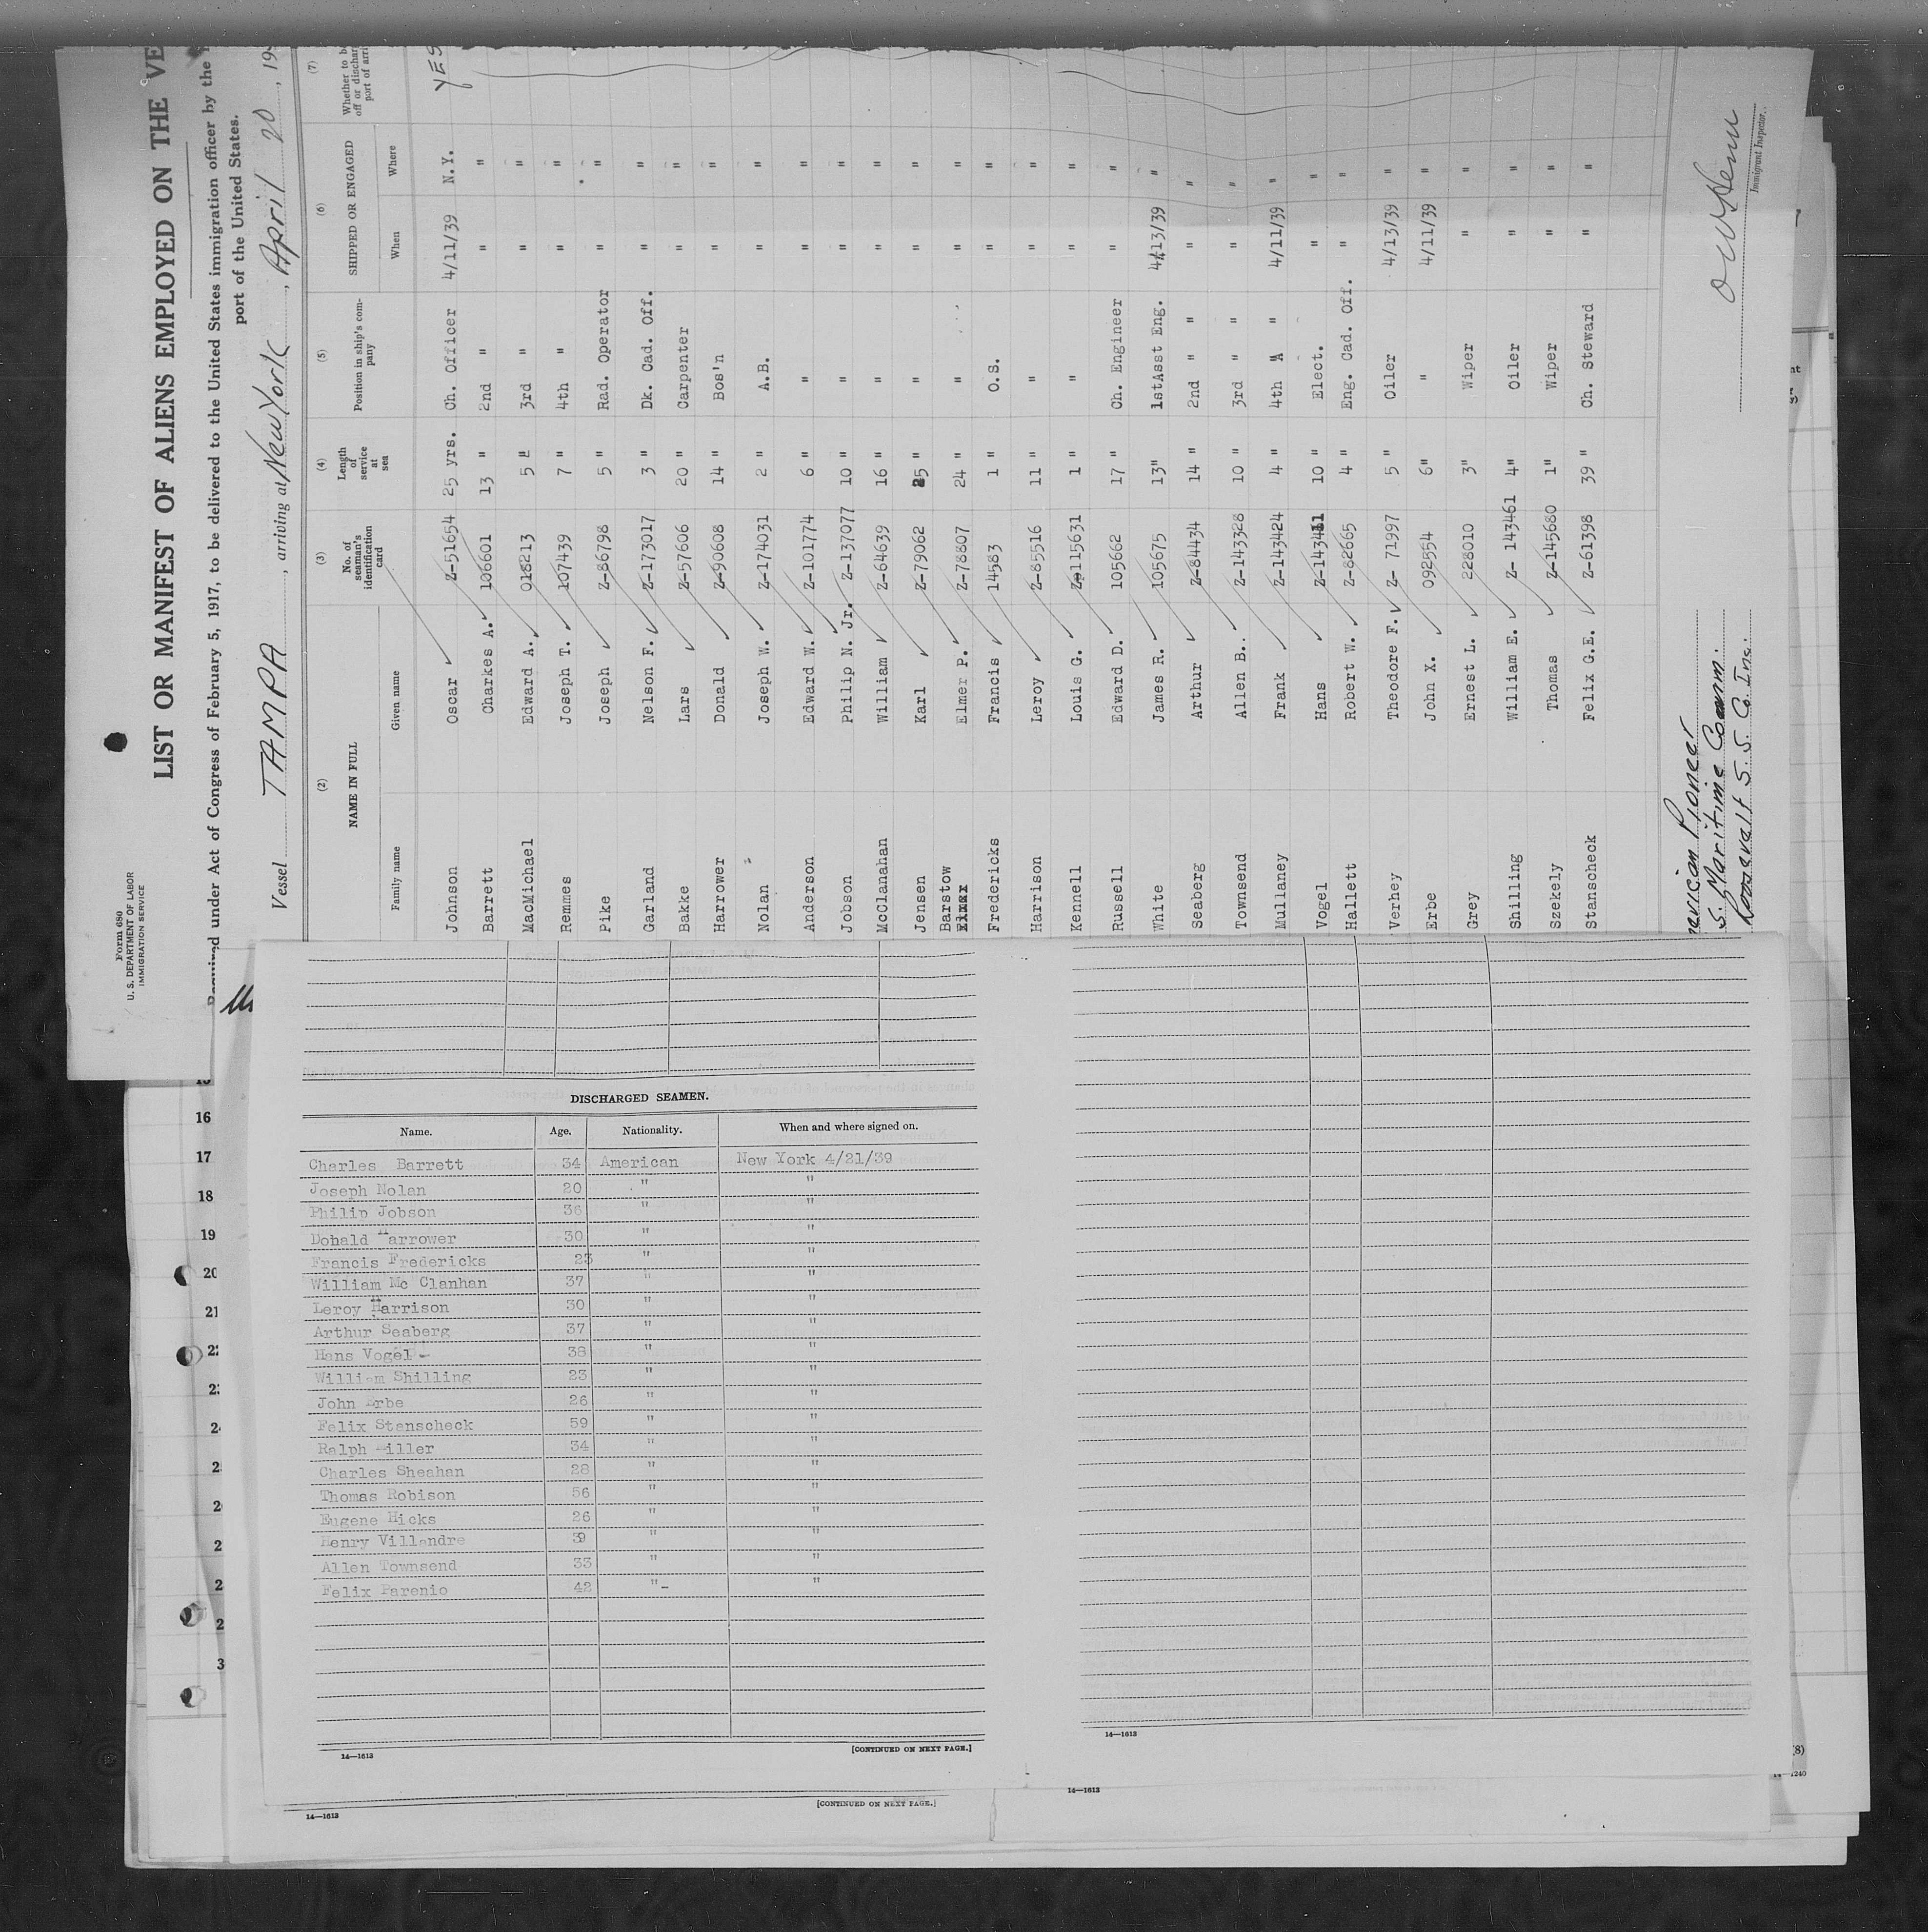 Form 680
U. S. DEPARTMENT OF LABOR
IMMIGRATION SERVICE
LIST OR MANIFEST OF ALIENS EMPLOYED ON THE VE
Required under Act of Congress of February 5, 1917, to be delivered to the United States immigration officer by the
port of the United States.
Vessel TAMPA, arriving at New York, April 20, 19
(2) (3) (4) (5) (6) (7)
NAME IN FULL No. of seaman's identification card Length of service at sea Position in ship's company SHIPPED OR ENGAGED Whether to b off or dischar port of arri
Family name Given name When Where
Johnson Oscar Z-51654 25 yrs. Ch. Officer 4/11/39 N.Y. YES
Barrett Charkes A. 106601 13 " 2nd " " "
MacMichael Edward A. 018213 5 " 3rd " " "
Remmes Joseph T. 107439 7 " 4th " " "
Pike Joseph Z-86798 5 " Rad. Operator " "
Garland Nelson F. Z-173017 3 " Dk. Cad. Off. " "
Bakke Lars Z-57606 20 " Carpenter " "
Harrower Donald Z-90608 14 " Bos'n " "
Nolan Joseph W. Z-174031 2 " A.B. " "
Anderson Edward W. Z-101774 6 " " " "
Jobson Philip N. Jr. Z-137077 10 " " " "
McClanahan William Z-64639 16 " " " "
Jensen Karl Z-79062 25 " " " "
Barstow Elmer P. Z-78807 24 " " " "
Fredericks Francis 14583 1 " O.S. " "
Harrison Leroy Z-85516 11 " " " "
Kennell Louis G. Z-115631 1 " " " "
Russell Edward D. 105662 17 " Ch. Engineer " "
White James R. 105675 13" 1stAsst Eng. 4/13/39 "
Seaberg Arthur Z-84434 14 " 2nd " " " "
Townsend Allen B. Z-143328 10 " 3rd " " " "
Mullaney Frank Z-143424 4 " 4th " " 4/11/39 "
Vogel Hans Z-143481 10 " Elect. " "
Hallett Robert W. Z-82665 4 " Eng. Cad. Off. " "
Verhey Theodore F. Z- 71997 5 " Oiler 4/13/39 "
Erbe John X. 092554 6" " 4/11/39 "
Grey Ernest L. 228010 3" Wiper " "
Shilling William E. Z- 143461 4" Oiler " "
Szekely Thomas Z-145680 1" Wiper " "
Stanscheck Felix G.E. Z-61398 39 " Ch. Steward " "
merican Pioneer
S. Maritime Comm.
Roosevalt S. S. Co. Inc.
Immigrant Inspector.
DISCHARGED SEAMEN.
Name. Age. Nationality. When and where signed on.
Charles Barrett 34 American New York 4/21/39
Joseph Nolan 20 " "
Philip Jobson 36 " "
Dohald Harrower 30 " "
Francis Fredericks 23 " "
William Mc Clanhan 37 " "
Leroy Harrison 30 " "
Arthur Seaberg 37 " "
Hans Vogel - 38 " "
William Shilling 23 " "
John Erbe 26 " "
Felix Stenscheck 59 " "
Ralph iller 34 " "
Charles Sheahan 28 " "
Thomas Robison 56 " "
Eugene Hicks 26 " "
Henry Villandre 39 " "
Allen Townsend 33 " "
Felix Parenio 42 "- "
14—1613 [CONTINUED ON NEXT PAGE.]
14—1613
14—1613 [CONTINUED ON NEXT PAGE.]
14—1613
16
17
18
19
20
21
22